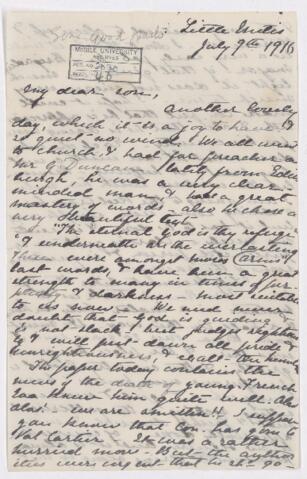 Little Metis
July 9th 1916
UNIVERSITY
My dear son,
Another lovely
day, which it is a joy to have
& quiet no wind. We all went
to church, & had for preacher a
Mr G Duncan lately from Edin
burgh he was a very clear
minded man, & had a great
mastery of words also he chose a
very beautiful text
"The eternal God is thy refuge
& underneath are the everlasting
These were amongst moses (Arms"
last words, & have been a great
strength to many in times of per
& darkness — most suitable
to us now — We need never
doubt that God is guiding
& is not slack, but judges righteous
ly & will put down all pride &
unrighteousness, & exalt the humble
The paper today contains the
news of the death of young French
Zoa knew him quite well. Alas
alas! we are smitten. I suppose
you know that Con has gone to
Val Cartier It was a rather
hurried move. But the author
ities were urgent that he sh. go —